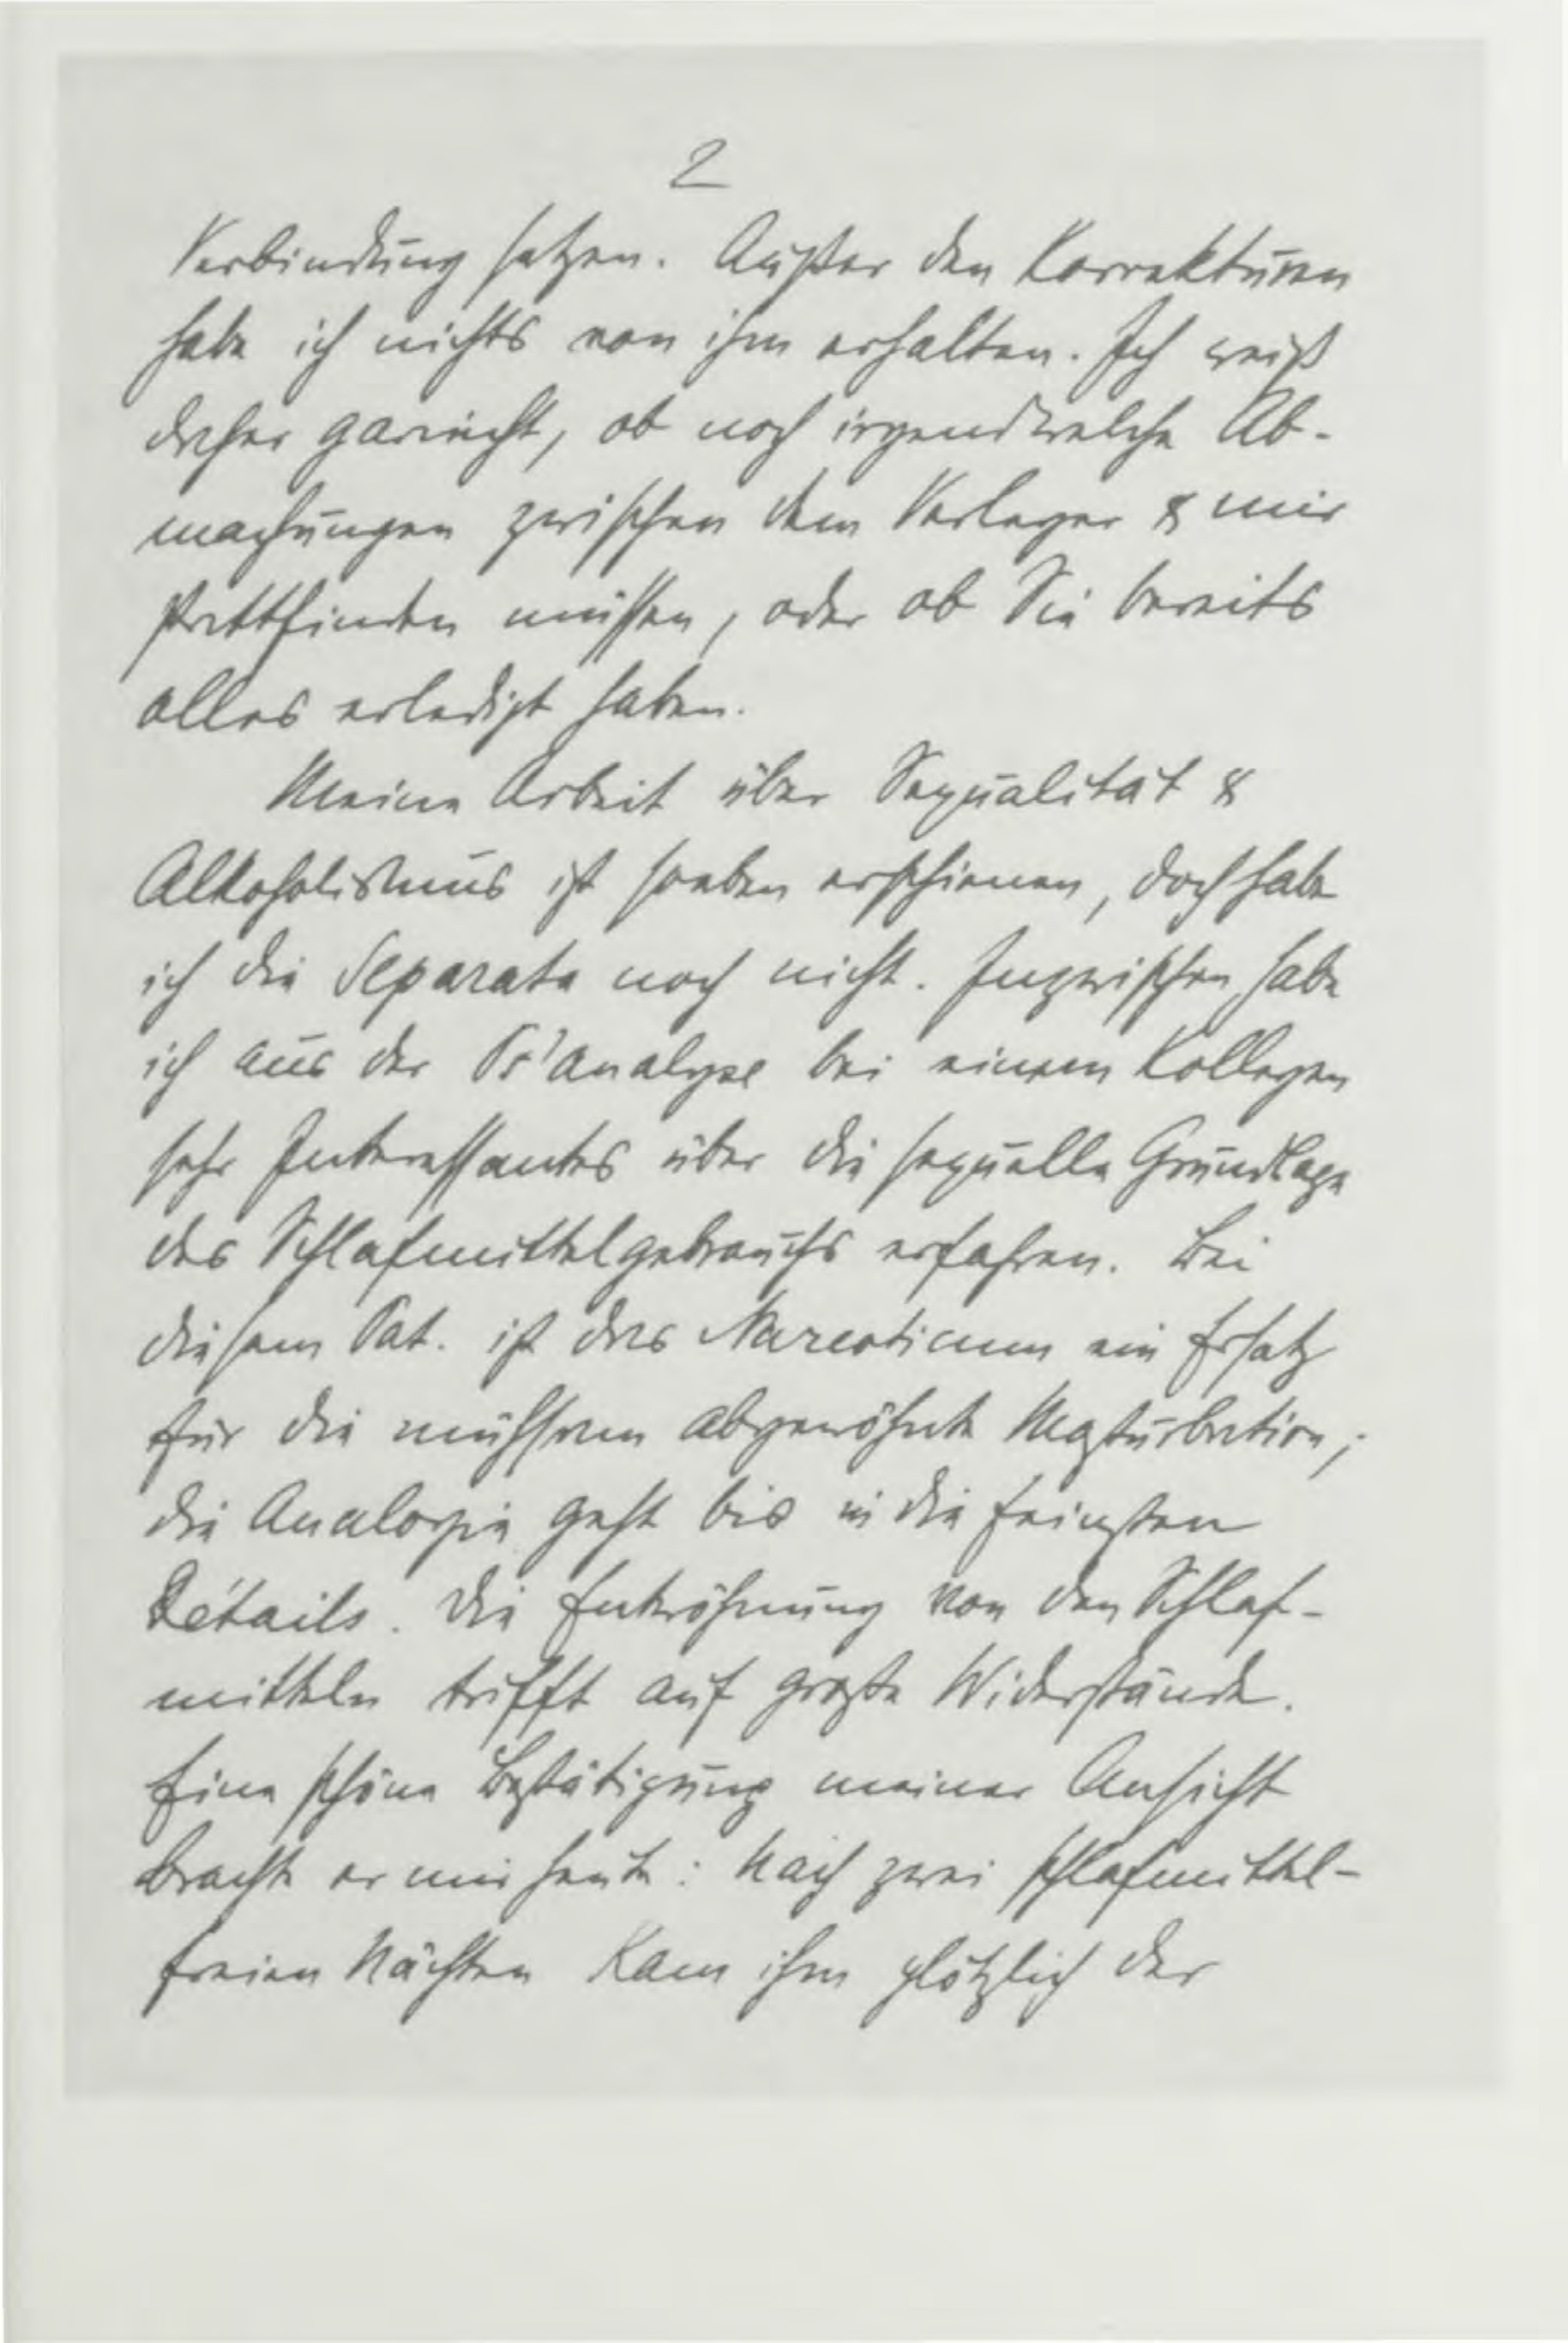 2
Verbindung setzen. Außer den Korrekturen
habe ich nichts von ihm erhalten. Ich weiß
daher garnicht, ob noch irgendwelche Ab-
machungen zwischen dem Verleger & mir
stattfinden müssen, oder ob Sie bereits
alles erledigt haben.
Meine Arbeit über Sexualität &
Alkoholismus ist soeben erschienen, doch habe
ich die Separata noch nicht. Inzwischen habe
ich aus der Ps'analyse bei einem Kollegen
sehr Interessantes über die sexuelle Grundlage
des Schlafmittelgebrauchs erfahren. Bei
diesem Pat. ist das Narcoticum ein Ersatz
für die mühsam abgewöhnte Masturbation;
die Analogie geht bis in die feinsten
Détails. Die Entwöhnung von den Schlaf-
mitteln trifft auf große Widerstände.
Eine schöne Bestätigung meiner Ansicht
brachte er mir heute: Nach zwei schlafmittel-
freien Nächten kam ihm plötzlich der